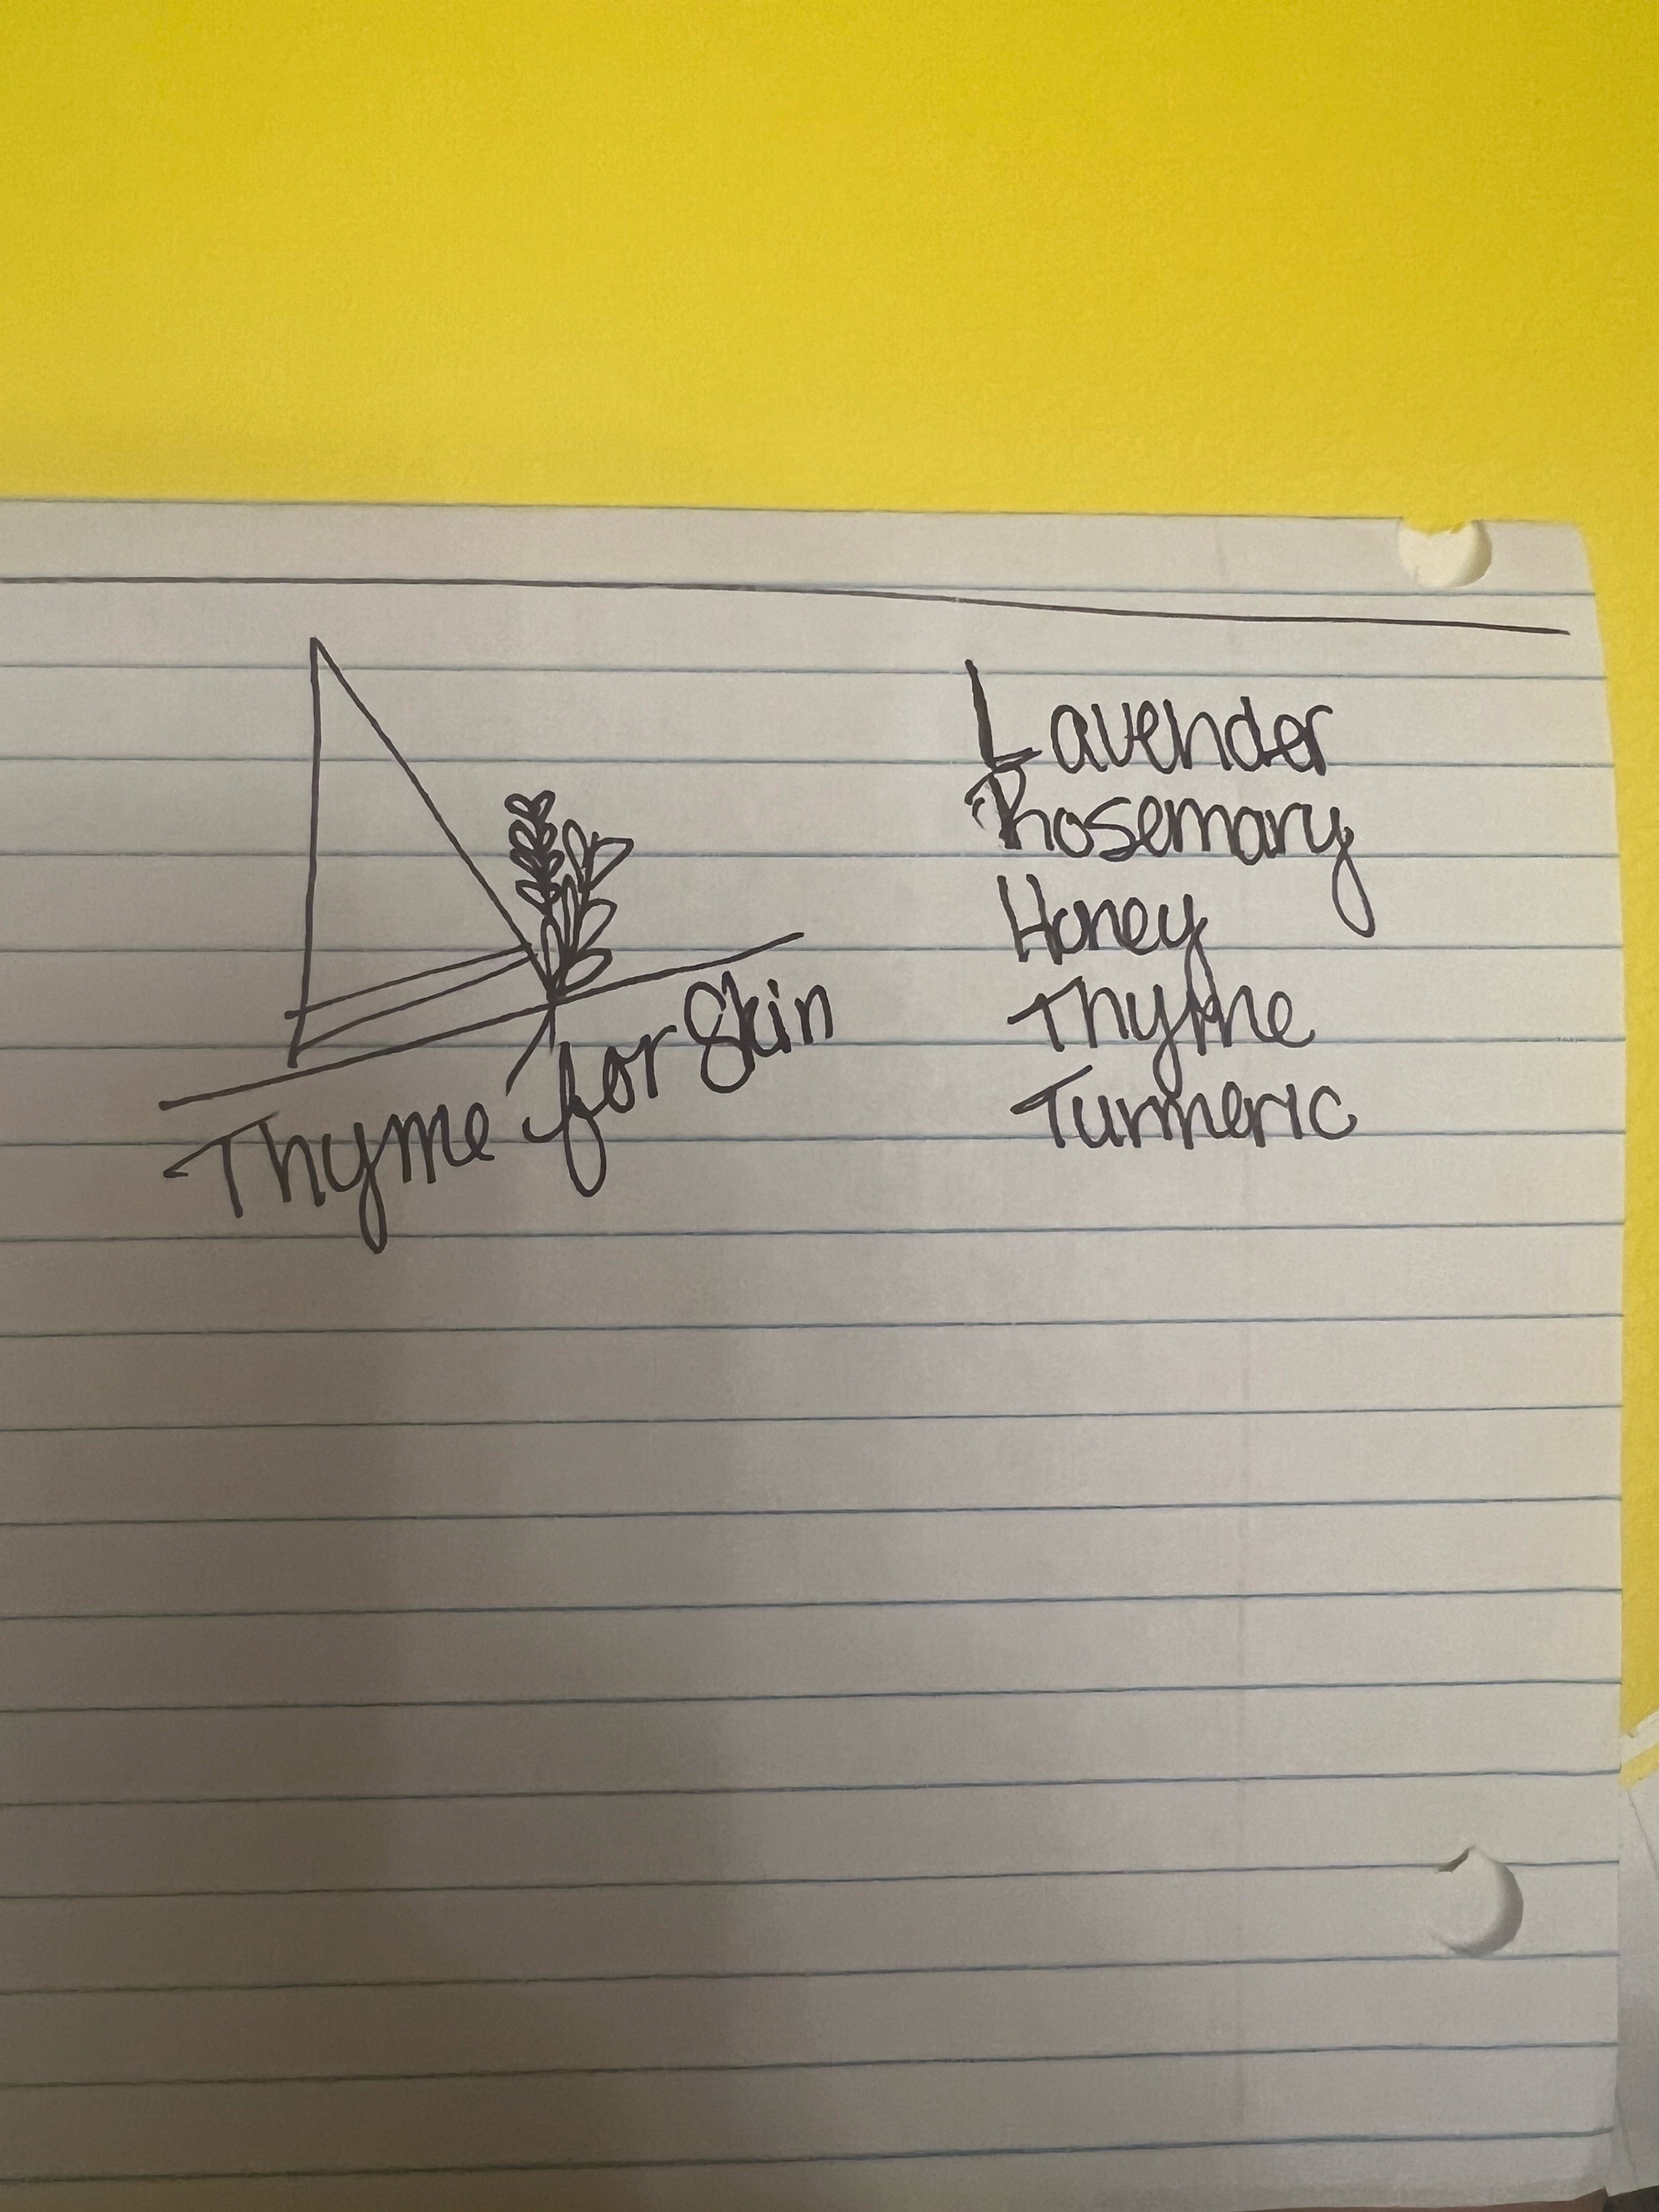 Thyme for Skin
Lavender
Rosemary
Honey
Thyme
Turmeric